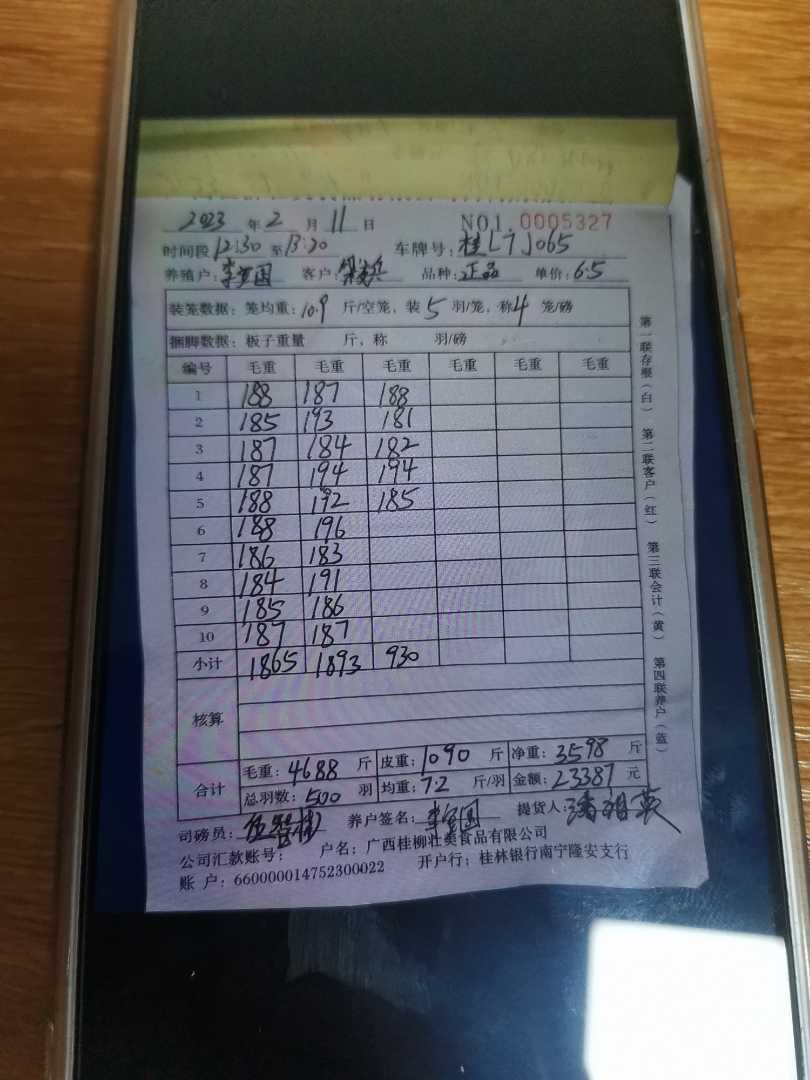 2023 年 2 月 11 日 NO1. 0005327
时间段 12:30 至 13:20 车牌号: 桂L7J065
养殖户: 客户: 品种: 正品 单价: 6.5
装笼数据: 笼均重: 10.9 斤/空笼, 装 5 羽/笼, 称 4 笼/磅
捆脚数据: 板子重量 斤, 称 羽/磅
编号 毛重 毛重 毛重 毛重 毛重 毛重
1 188 187 188
2 185 193 181
3 187 184 182
4 187 194 194
5 188 192 185
6 188 196
7 186 183
8 184 191
9 185 186
10 187 187
小计 1865 1893 930
核算
合计 毛重: 4688 斤 皮重: 1090 斤 净重: 3598 斤
总羽数: 500 羽 均重: 7.2 斤/羽 金额: 23387 元
司磅员: 养户签名: 提货人:
公司汇款账号: 户名: 广西桂柳壮美食品有限公司
账 户: 660000014752300022 开户行: 桂林银行南宁隆安支行
第一联存根(白) 第二联客户(红) 第三联会计(黄) 第四联养户(蓝)